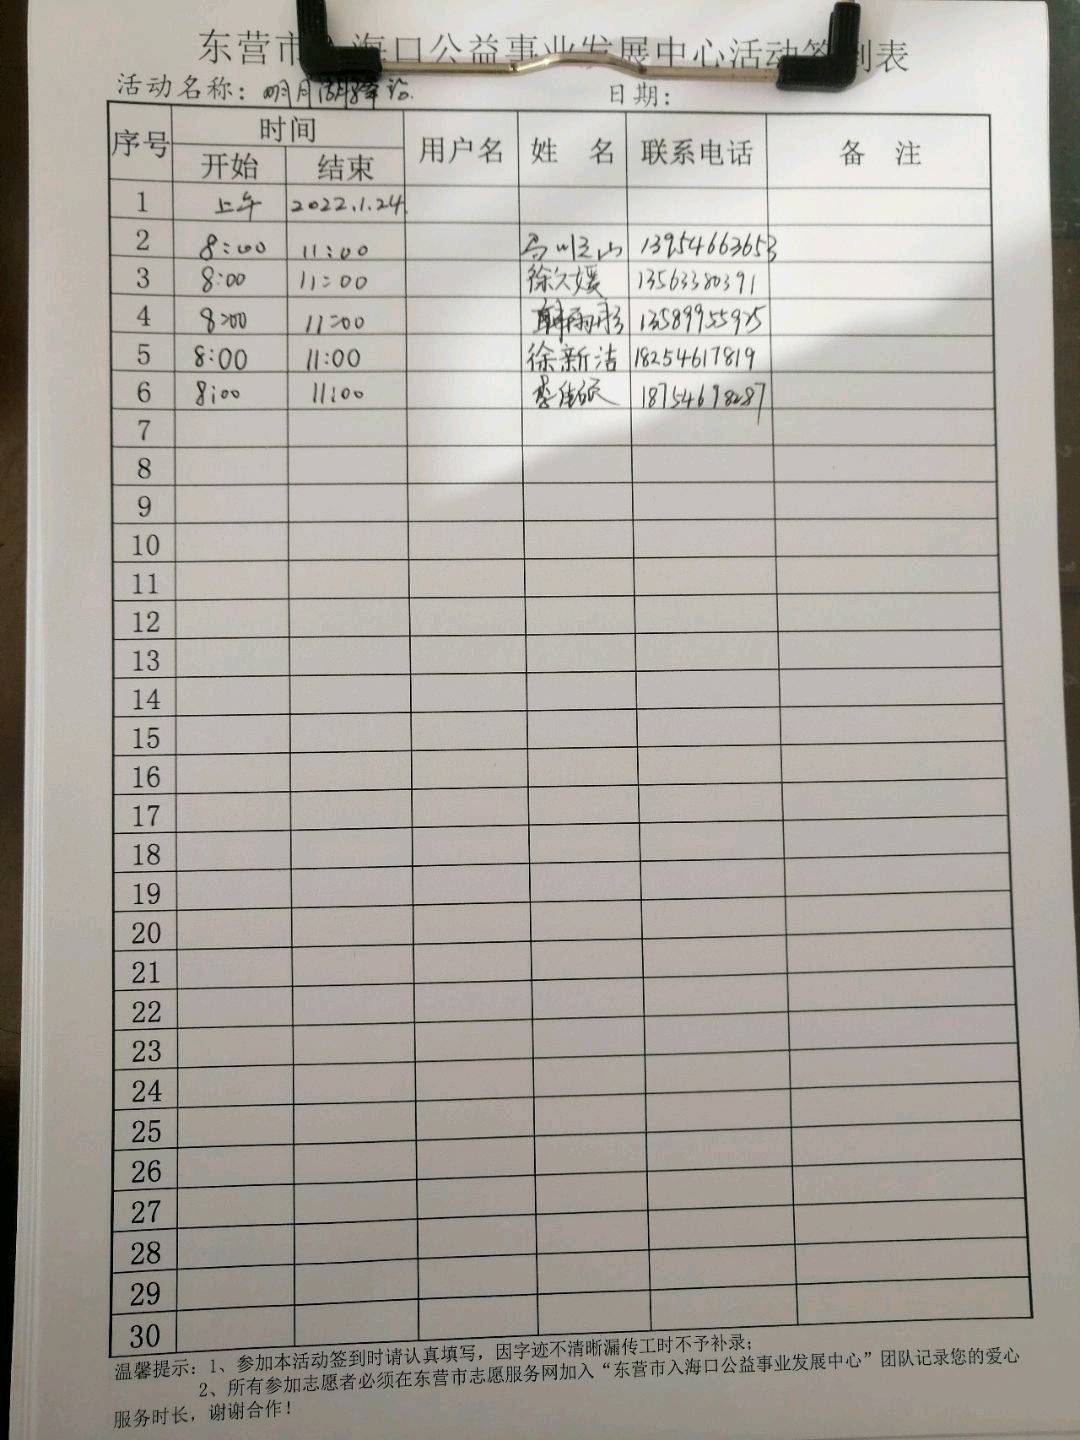 东营市入海口公益事业发展中心活动签到表
活动名称：明月湖 日期：
序号 时间 用户名 姓 名 联系电话 备 注
开始 结束
1 上午 2022.1.24.
2 8:00 11:00 马 山 13954663653
3 8:00 11:00 徐久媛 13563380391
4 8:00 11:00 韩雨彤 13589955925
5 8:00 11:00 徐新洁 18254617819
6 8:00 11:00 18754698287
7
8
9
10
11
12
13
14
15
16
17
18
19
20
21
22
23
24
25
26
27
28
29
30
温馨提示：1、参加本活动签到时请认真填写，因字迹不清晰漏传工时不予补录；
2、所有参加志愿者必须在东营市志愿服务网加入“东营市入海口公益事业发展中心”团队记录您的爱心
服务时长，谢谢合作！